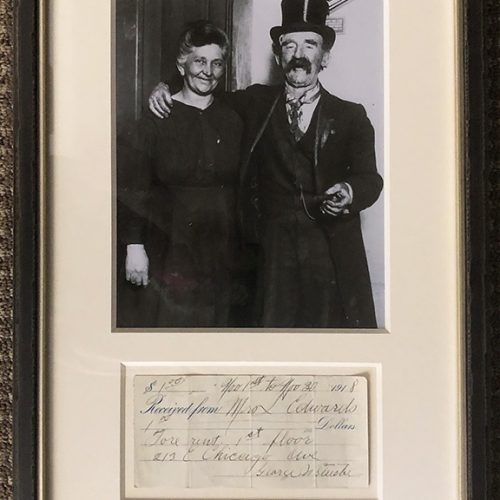 $1.00 Nov 1st to Nov 30 1918
Received from Mrs L Edwards
Dollars
Fore rent 1st floor
213 E Chicago Ave
George